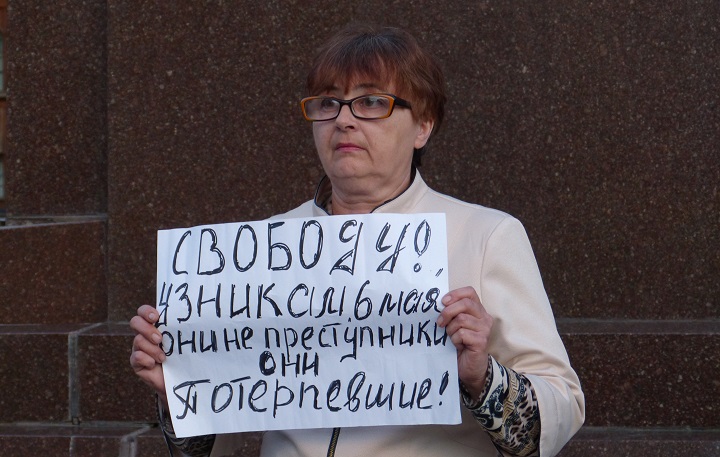 СВОБОДУ!
УЗНИКАМ 6 мая
они не преступники
они
Потерпевшие!